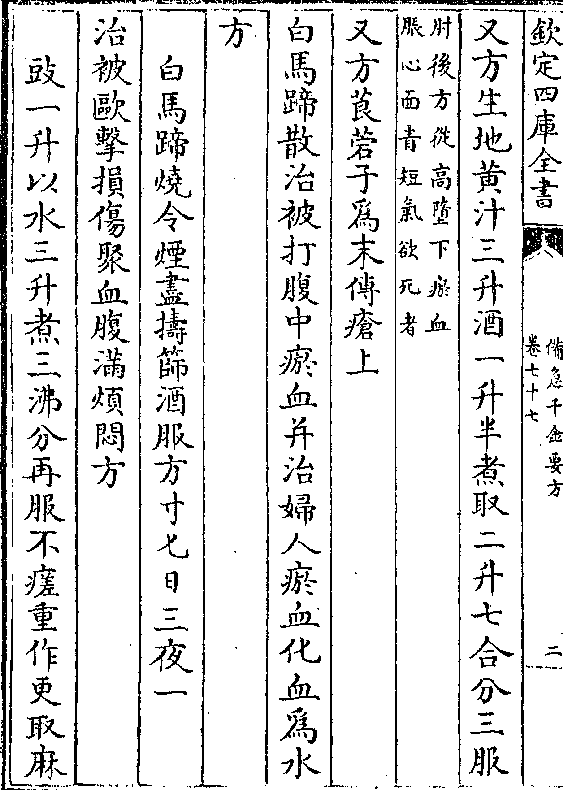 欽定四庫全書
備急千金要方
卷七十七
二
又方生地黃汁三升酒一升半煮取二升七合分三服
肘後方從高墮下瘀血
脹心面青短氣欲死者
又方莨菪子為末傅瘡上
白馬蹄散治被打腹中瘀血并治婦人瘀血化血為水
方
白馬蹄燒令煙盡擣篩酒服方寸匕日三夜一
治被毆擊損傷聚血腹滿煩悶方
豉一升以水三升煮三沸分再服不瘥重作更取麻